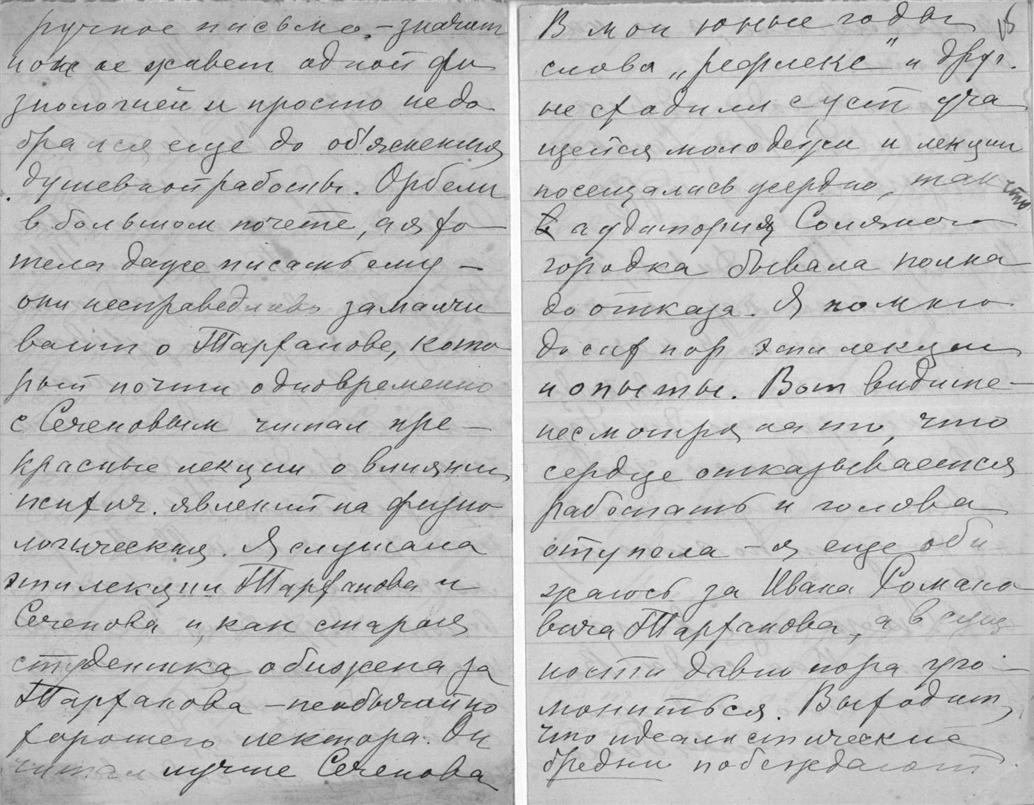 ручное письмо, – значит
пока не живет одной фи
зиологией и просто недо
брался еще до объяснения
душевной работы. Орбели
в большом почете, а я хо
тела даже писать ему –
они несправедливо замалчи
вают о Тарханове, кото
рый почти одновременно
с Сеченовым читал пре –
красные лекции о влиянии
психич. явлений на физио
логические. Я слушала
эти лекции Тарханова и
Сеченова и, как старая
студентка обижена за
Тарханова – необычайно
хорошего лектора. Он
читал лучше Сеченова
В мои юные годы
слова „рефлекс" и друг.
не сходили с уст уча
щейся молодежи и лекции
посещались усердно, так что
аудитория Соляного
городка бывала полна
до отказа. Я помню
до сих пор эти лекции
и опыты. Вот видите –
несмотря на то, что
сердце отказывается
работать и голова
отупела – я еще оби
жаюсь за Ивана Романо
вича Тарханова, а в сущ
ности давно пора уго –
мониться. Выходит,
что идеалистические
бредни побеждают